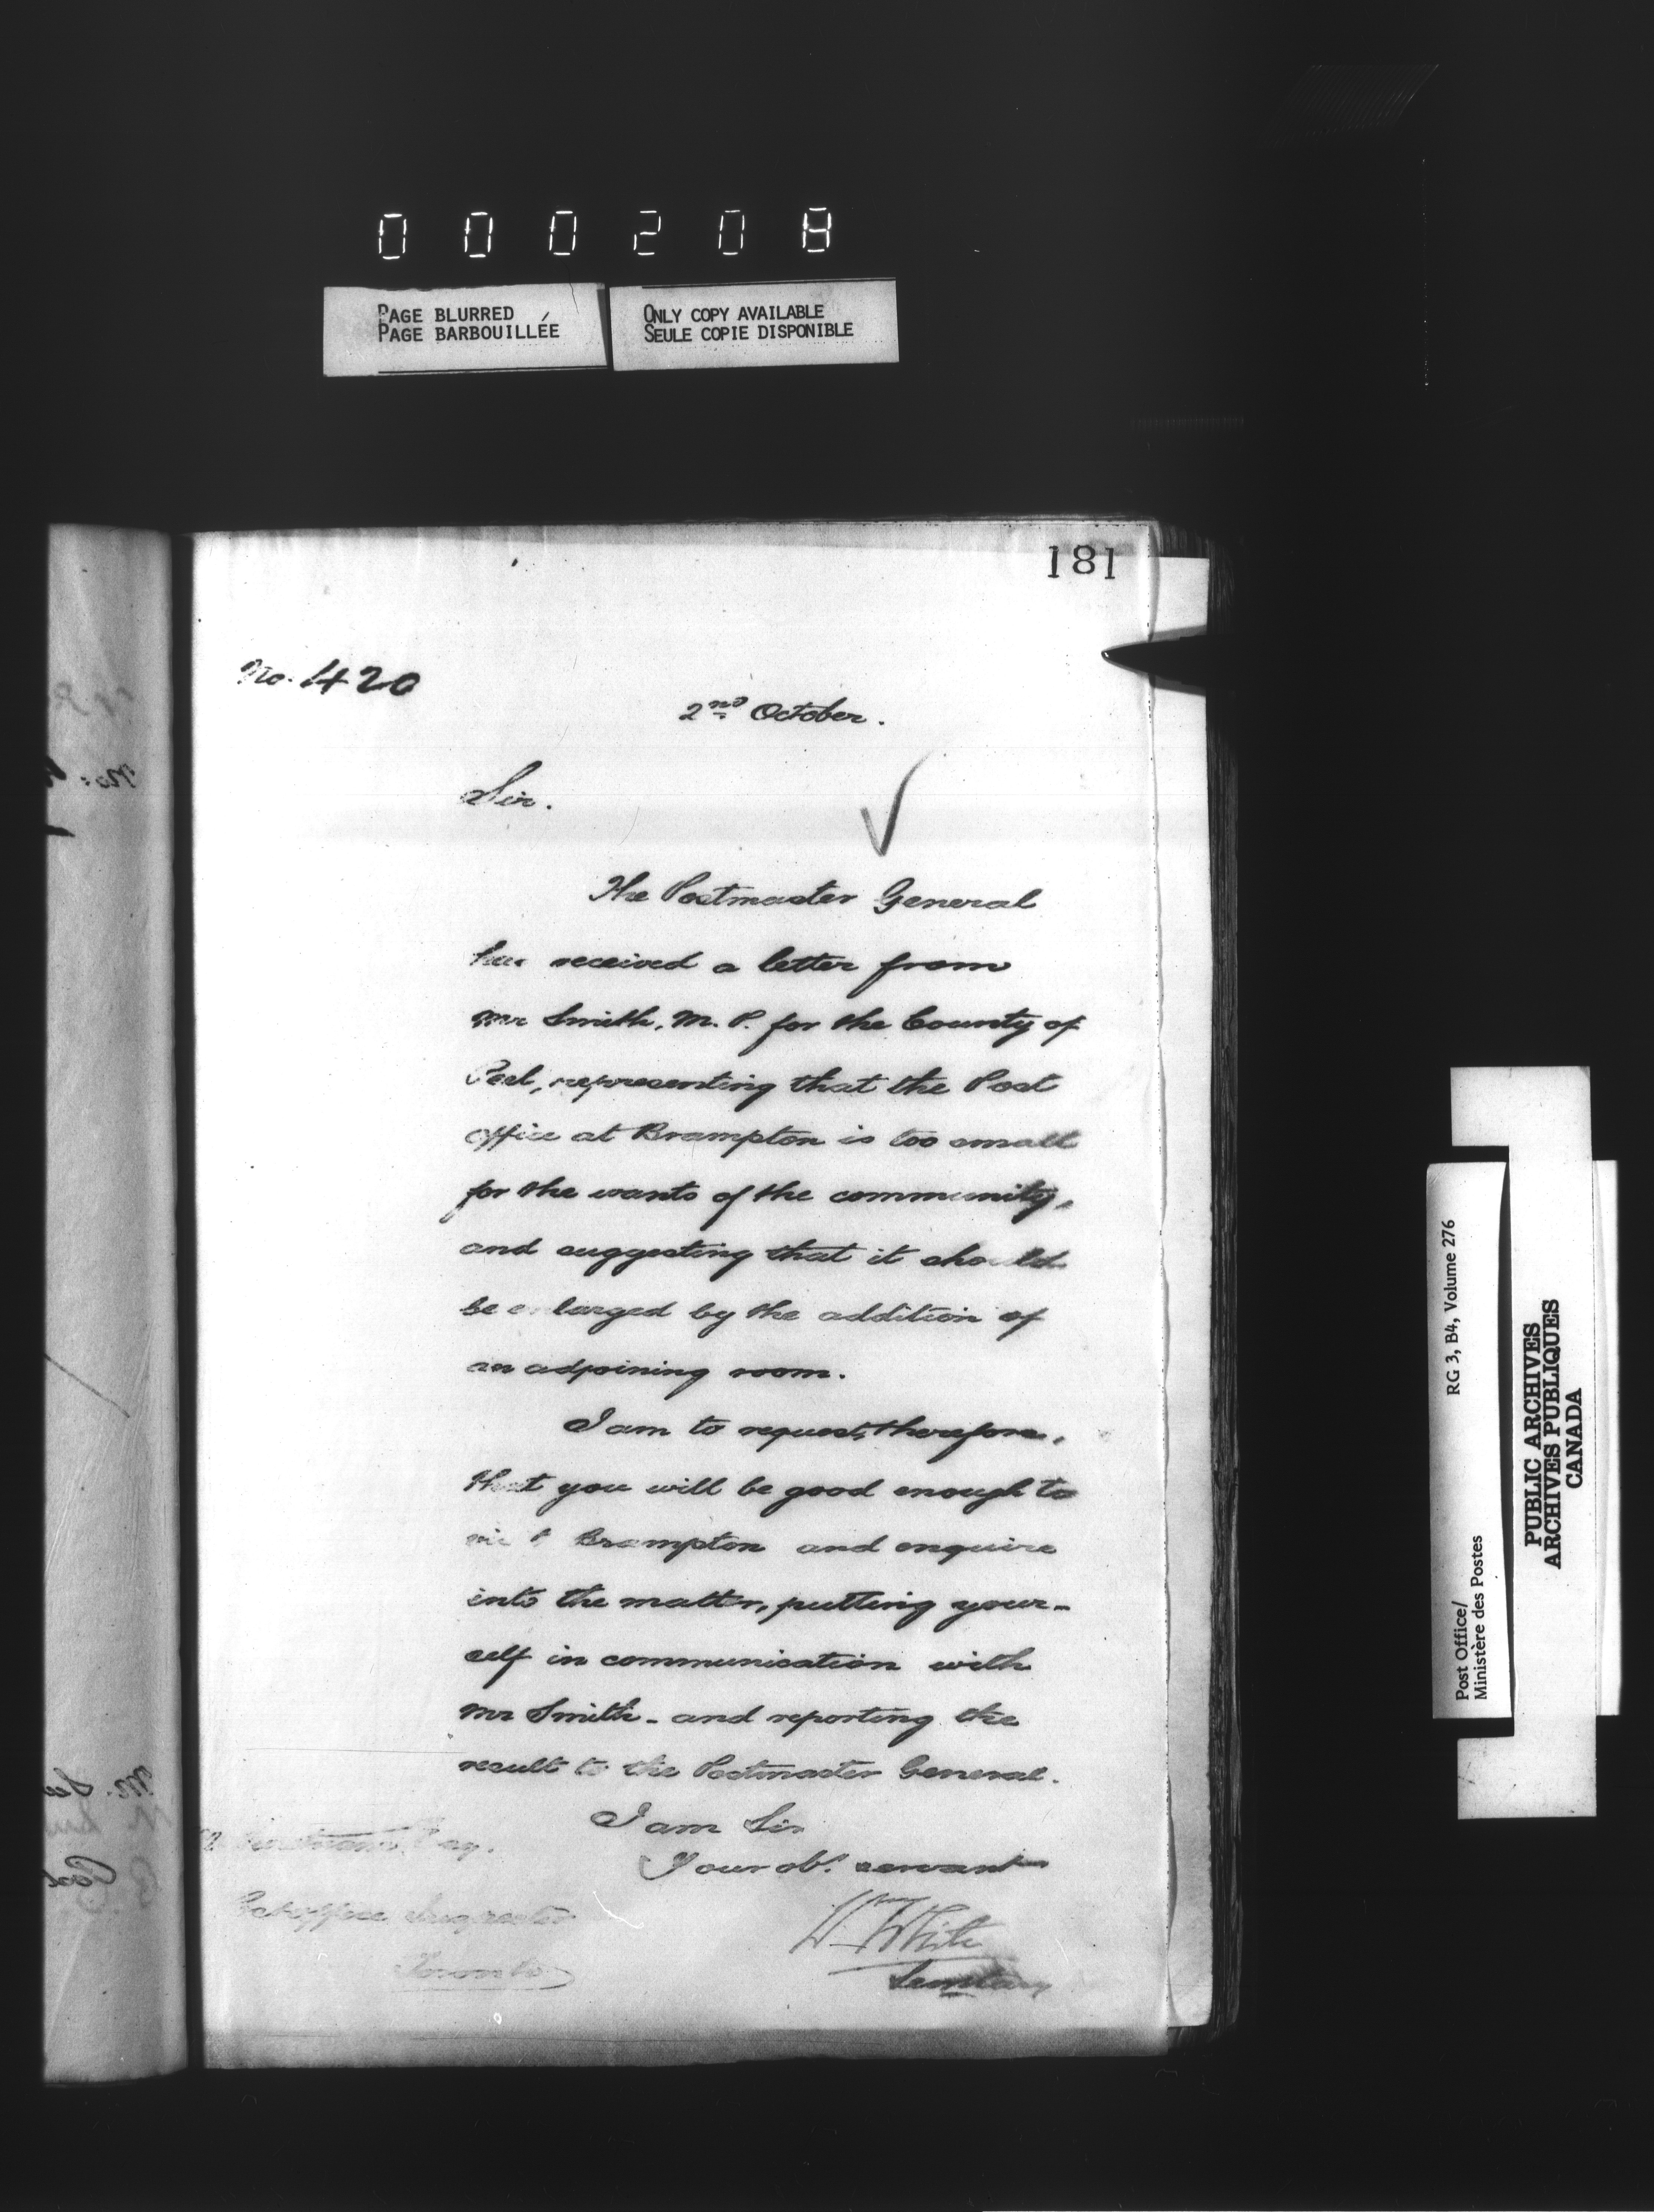 000208
PAGE BLURRED
PAGE BARBOUILLÉE
ONLY COPY AVAILABLE
SEULE COPIE DISPONIBLE
181
No. 420
2nd October.
Sir.
The Postmaster General
has received a letter from
Mr Smith, M. P. for the County of
Peel, representing that the Post
Office at Brampton is too small
for the wants of the community,
and suggesting that it should
be enlarged by the addition of
an adjoining room.
I am to request, therefore,
that you will be good enough to
visit Brampton and enquire
into the matter, putting your-
self in communication with
Mr Smith - and reporting the
result to the Postmaster General.
I am Sir
Your obt. servant
W White
Secretary
Esq.
Post Office Inspector
Toronto
Post Office/
Ministère des Postes
RG 3, B4, Volume 276
PUBLIC ARCHIVES
ARCHIVES PUBLIQUES
CANADA